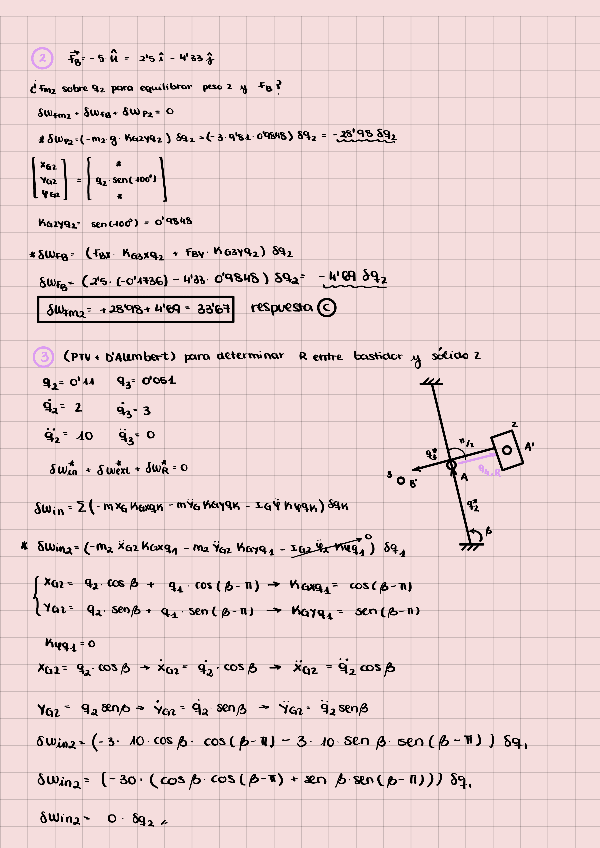 2 F⃗B = -5 û = 2'5 î - 4'33 ĵ
¿Fm2 sobre q2 para equilibrar peso 2 y FB?
δWFm2 + δWFB + δWP2 = 0
* δWP2 = (-m2·g·KG2Yq2) δq2 = (-3·9'81·0'9848) δq2 = -28'98 δq2
[XG2 YG2 ΨG2] = [* q2·sen(100°) *]
KG2Yq2 = sen(100°) = 0'9848
* δWFB = (FBX·KG3Xq2 + FBY·KG3Yq2) δq2
δWFB = (2'5·(-0'1736) - 4'33·0'9848) δq2 = -4'69 δq2
δWFm2 = +28'98 + 4'69 = 33'67 respuesta C
3 (PTV + D'Alembert) para determinar R entre bastidor y sólido 2
q2 = 0'11 q3 = 0'051
q̇2 = 2 q̇3 = 3
q̈2 = 10 q̈3 = 0
δW*in + δW*ext + δW*R = 0
δWin = Σ(-mẍG KGXqK - mÿG KGYqK - IG Ψ̈ KΨqK) δqK
* δWin2 = (-m2 ẌG2 KGXq1 - m2 ŸG2 KGYq1 - IG2 Ψ̈2 KΨq1) δq1
0
XG2 = q2·cosβ + q1·cos(β-π) → KGXq1 = cos(β-π)
YG2 = q2·senβ + q1·sen(β-π) → KGYq1 = sen(β-π)
KΨq1 = 0
XG2 = q2·cosβ → ẊG2 = q̇2·cosβ → ẌG2 = q̈2 cosβ
YG2 = q2 senβ → ẎG2 = q̇2 senβ → ŸG2 = q̈2 senβ
δWin2 = (-3·10·cosβ·cos(β-π) - 3·10·senβ·sen(β-π)) δq1
δWin2 = [-30·(cosβ·cos(β-π) + senβ·sen(β-π))] δq1
δWin2 = 0·δq2
2
A'
π/2
q3*
3
B'
A
q2*
β